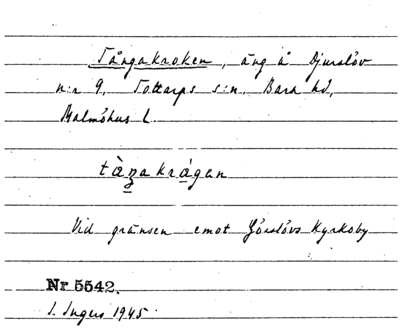 Tångakroken, äng å Djurslöv
n:r 9, Tottarps s:n, Bara hd,
Malmöhus l.
tàŋakrågan
Vid gränsen emot Görslövs Kyrkoby
Nr 5542.
I. Ingers 1945.